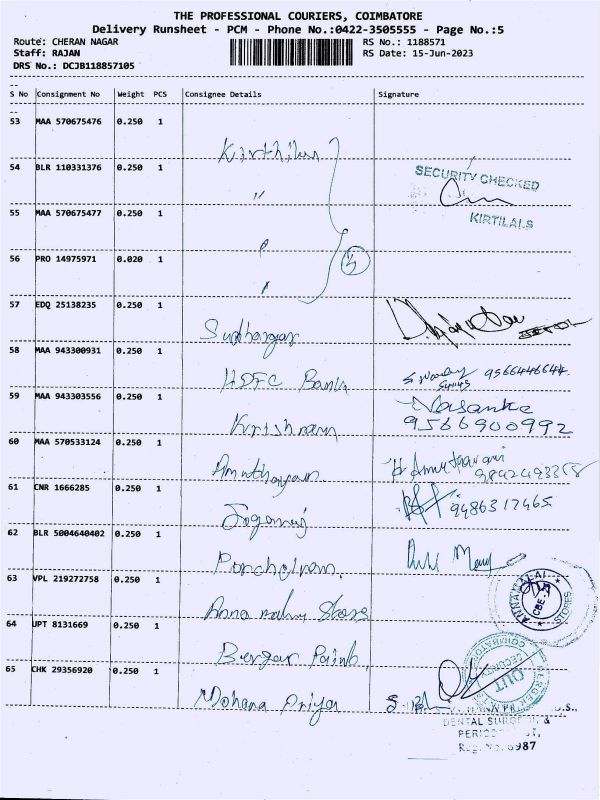 THE PROFESSIONAL COURIERS, COIMBATORE
Delivery Runsheet - PCM - Phone No.:0422-3505555 - Page No.:5
Route: CHERAN NAGAR RS No.: 1188571
Staff: RAJAN RS Date: 15-Jun-2023
DRS No.: DCJB118857105
S No Consignment No Weight PCS Consignee Details Signature
53 MAA 570675476 0.250 1 Kirthilan
54 BLR 110331376 0.250 1 " SECURITY CHECKED
55 MAA 570675477 0.250 1 KIRTILALS
56 PRO 14975971 0.020 1
57 EDQ 25138235 0.250 1
58 MAA 943300931 0.250 1 HDFC Bank 9566446644
59 MAA 943303556 0.250 1 Krishnan Vasanka
9566900992
60 MAA 570533124 0.250 1
61 CNR 1666285 0.250 1 9486317465
62 BLR 5004640402 0.250 1
63 VPL 219272758 0.250 1 Annamalay Stores ANNAMALAI STORES CBE
64 JPT 8131669 0.250 1 Berger Paints COIMBATORE SECURITY OUT BERGER
65 CHK 29356920 0.250 1 Mohana Priya
DENTAL SURGEON &
Reg. No. 6987